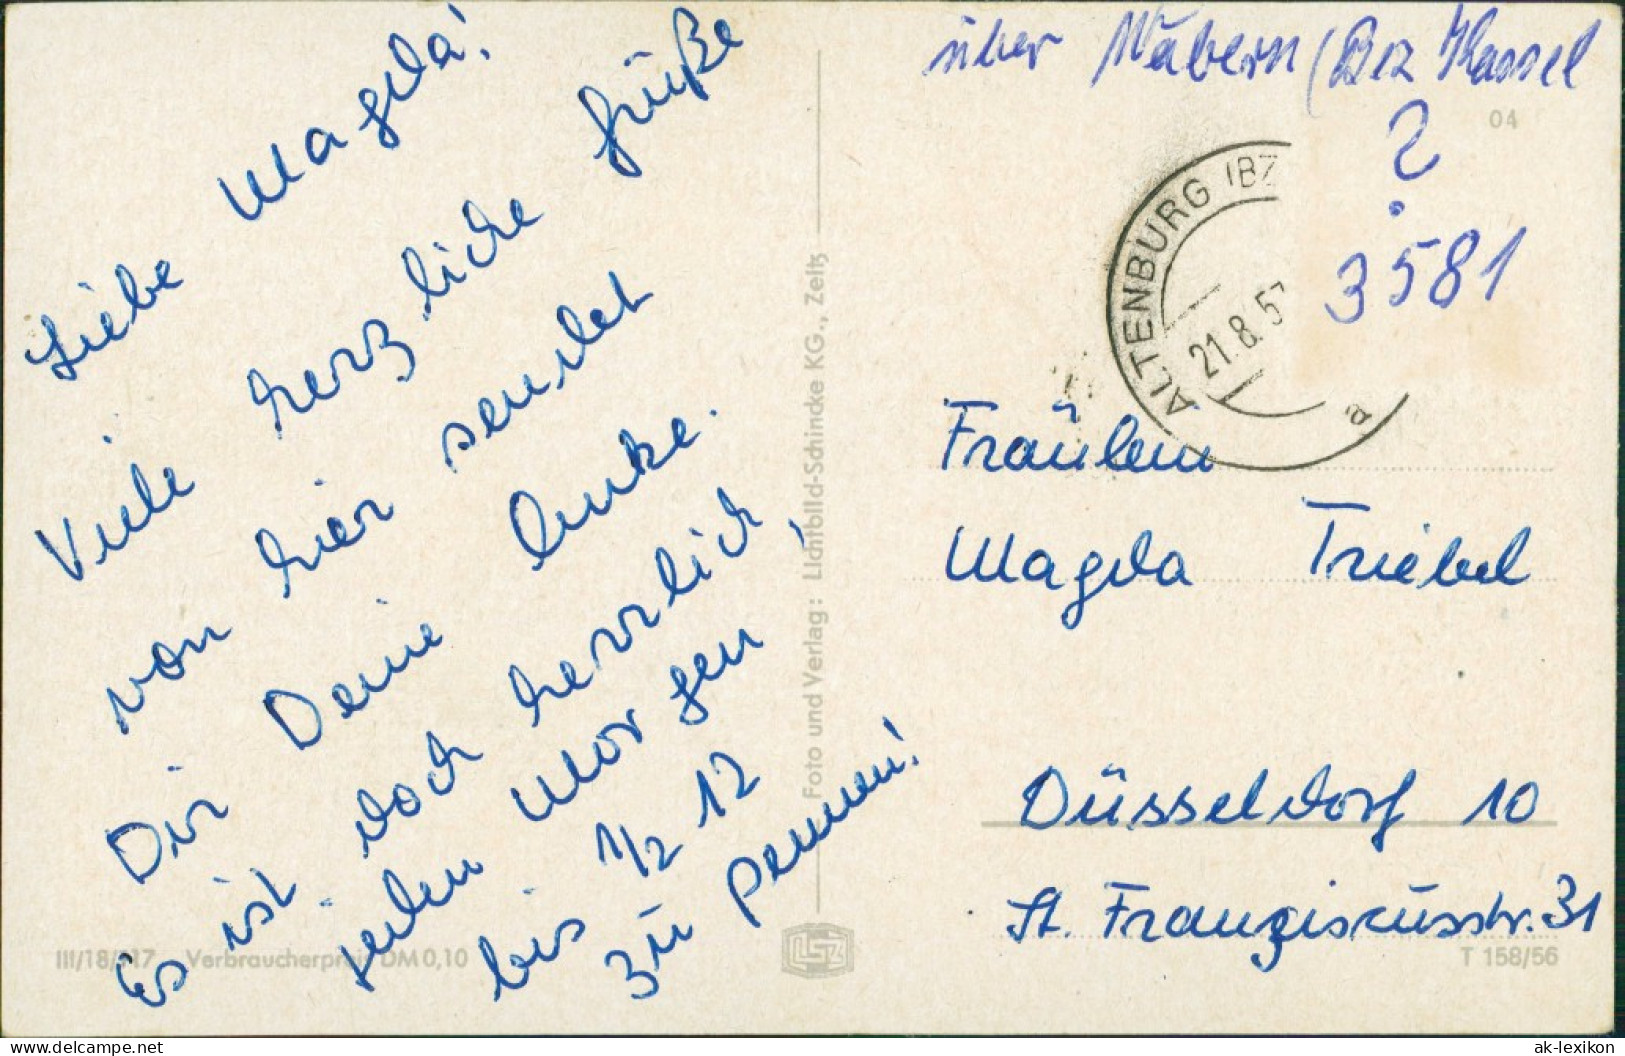 Liebe Magda!
Viele herzliche Grüße
von hier sendet
Dir Deine Anke.
Es ist doch herrlich,
jeden Morgen
bis 1/2 12
zu pennen!
III/18/117 Verbraucherpreis DM 0,10
Foto und Verlag: Lichtbild-Schincke KG., Zeitz
über Wabern (Bez Kassel
04
?
3581
ALTENBURG (BZ
21.8.57
a
Fräulein
Magda Triebel
Düsseldorf 10
St. Franziskusstr. 31
T 158/56
delcampe.net
ak-lexikon